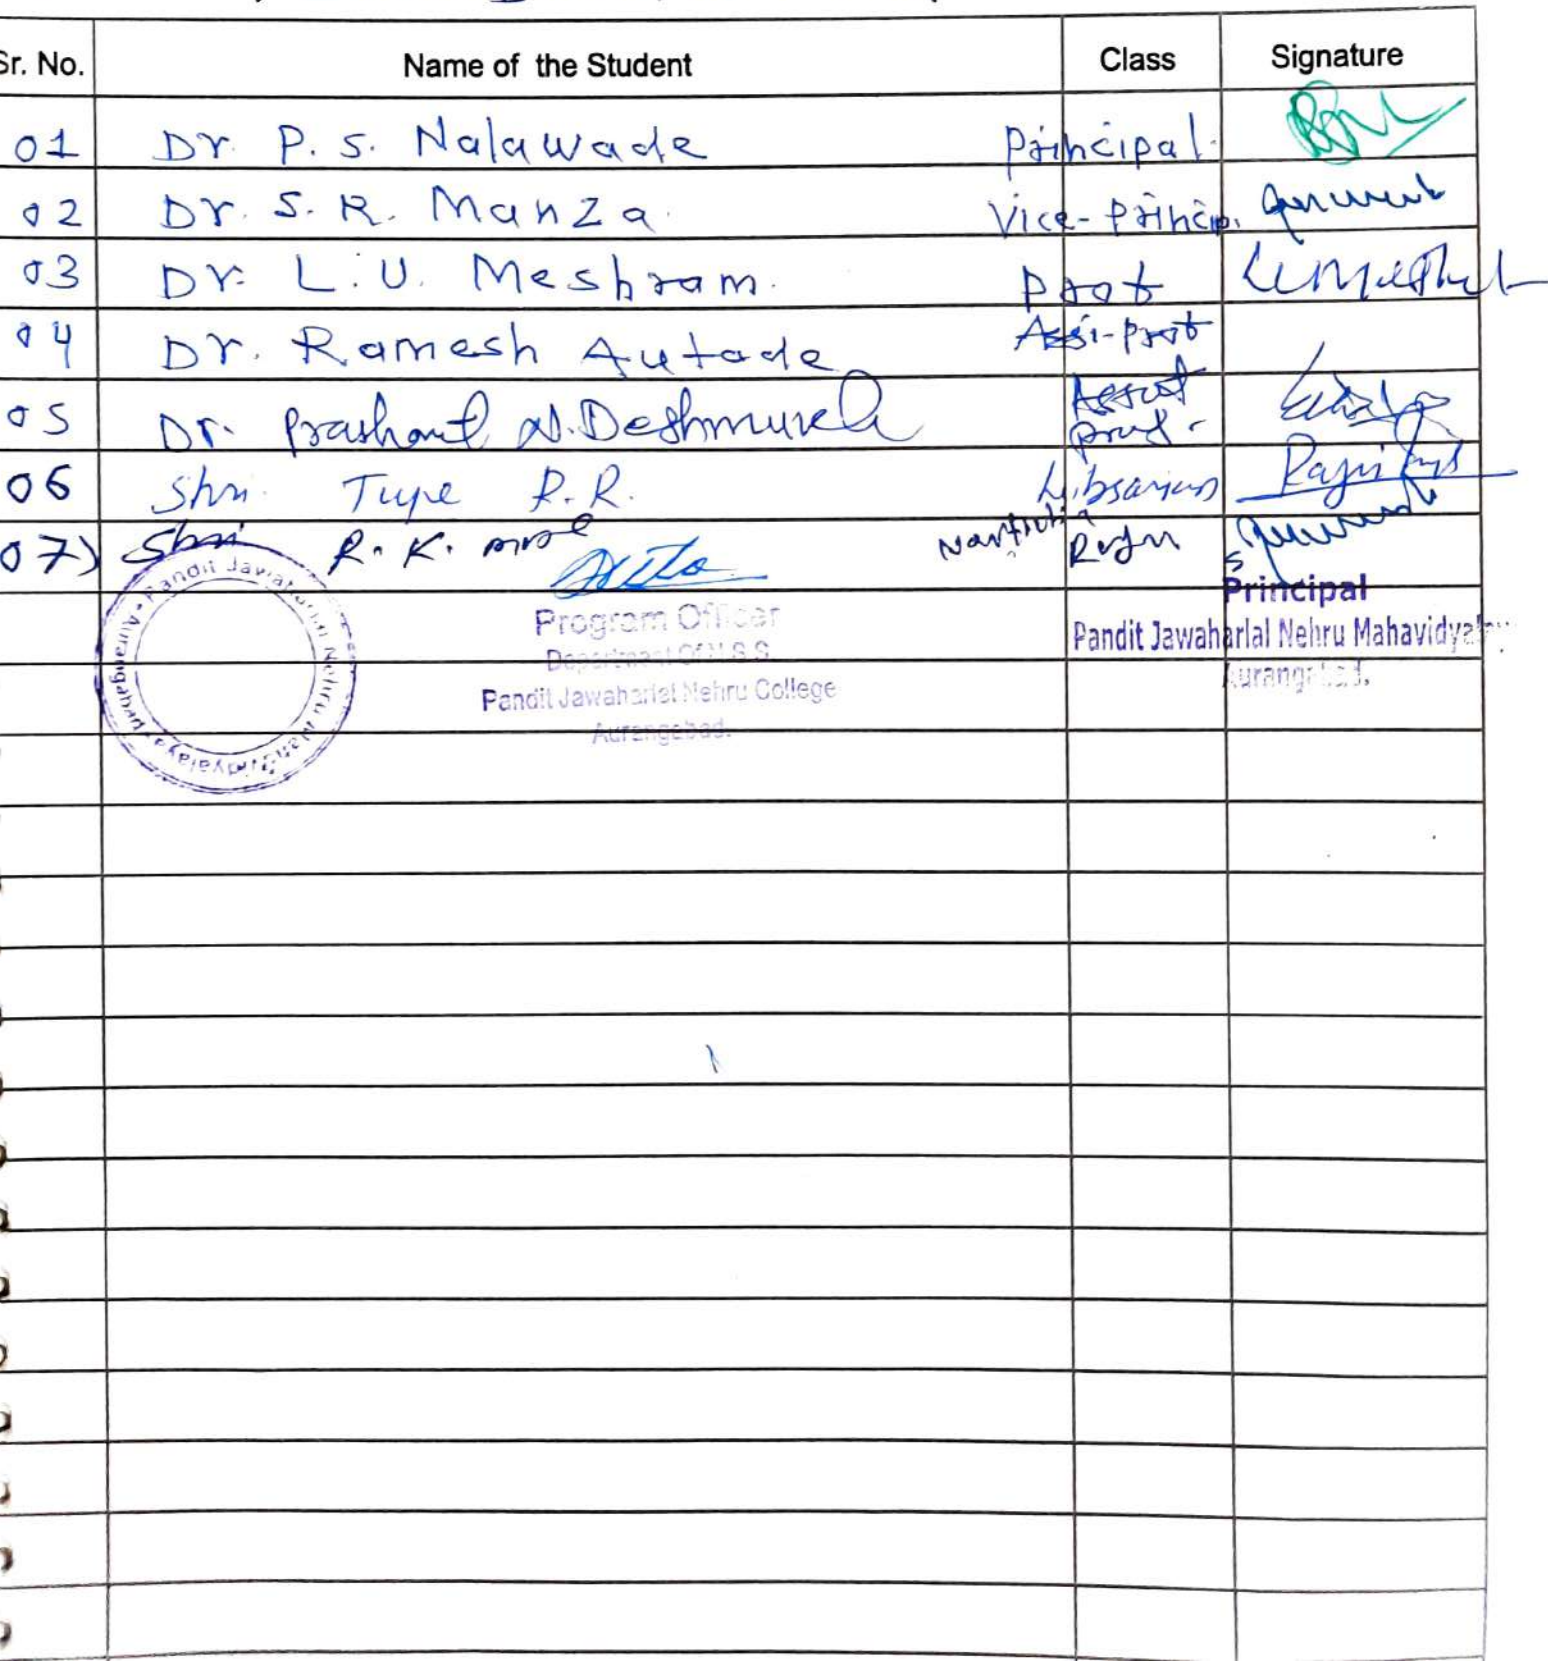 Sr. No. Name of the Student Class Signature
01 Dr. P. S. Nalawade Principal
02 Dr. S. R. Manza Vice-Princip.
03 Dr. L. U. Meshram Prof
04 Dr. Ramesh Autade Assi-Prof
05 Dr. Prashant N. Deshmukh Assist Prof.
06 Shri Tupe R. R. Librarian
07) Shri R. K.
Pandit Jawaharlal Nehru Mahavidyalaya Aurangabad
Program Officer
Department Of N.S.S.
Pandit Jawaharlal Nehru College
Aurangabad.
Principal
Pandit Jawaharlal Nehru Mahavidyalaya
Aurangabad.